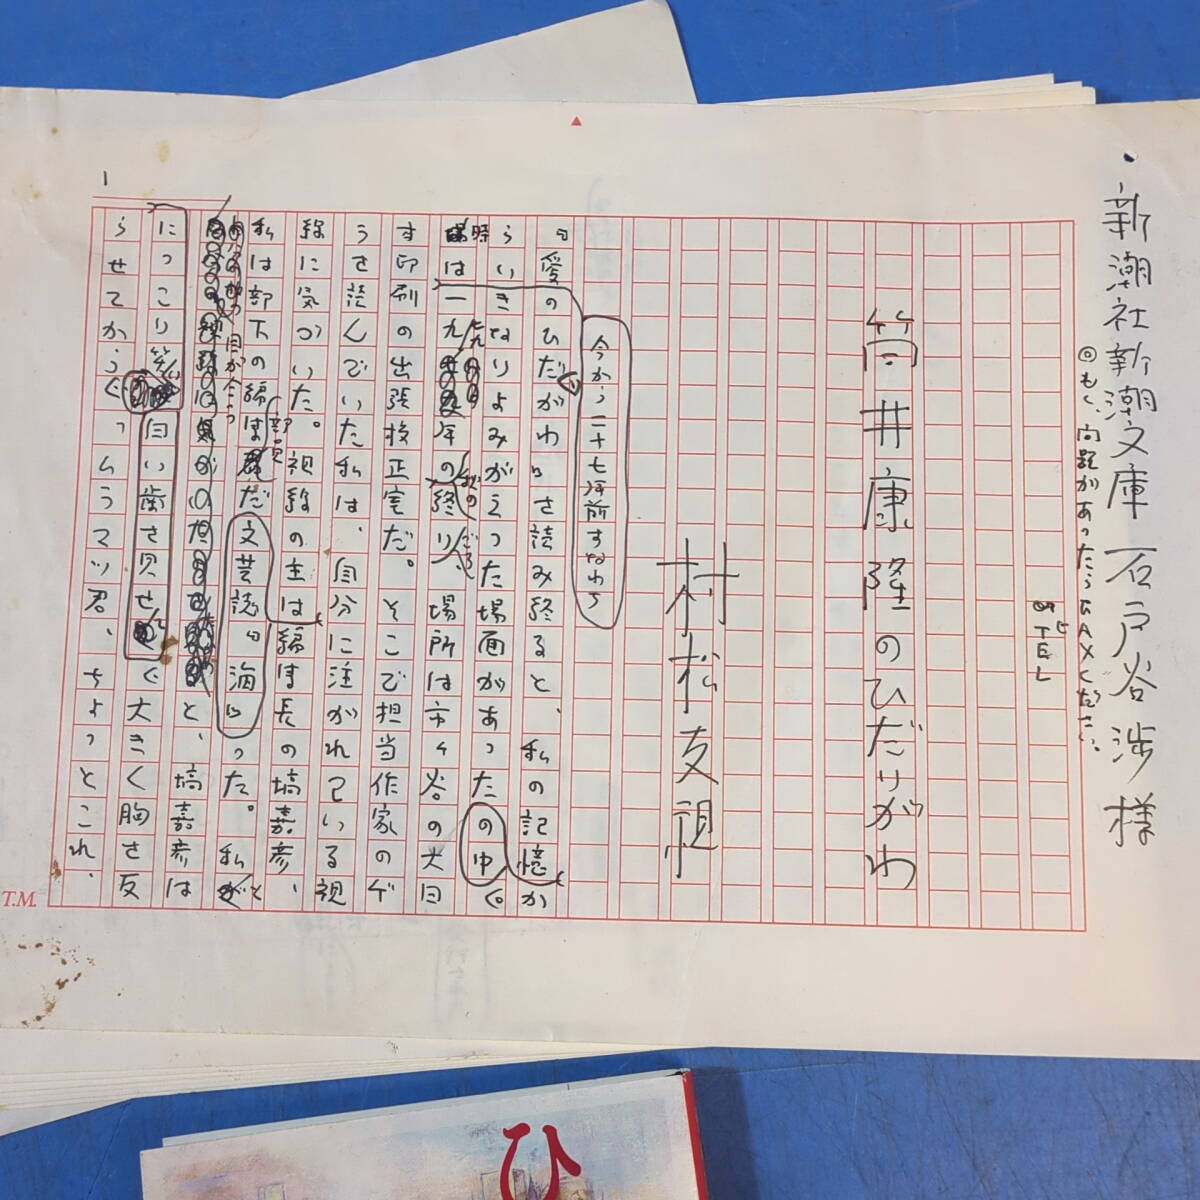 新潮社新潮文庫 石戸谷渉様
◎もし、問題があったらFAXください。
or TEL
筒井康隆のひだりがわ
村松友視
今から二十七年前すなわち
『愛のひだりがわ』を読み終ると、私の記憶か
らいきなりよみがえった場面があったの中
時は一九七九年の秋の終りごろ、場所は市ヶ谷の大日
す印刷の出張校正室だ。そこで担当作家のゲ
ラを読んでいた私は、自分に注がれている視
線に気づいた。視線の主は編集長の塙嘉彦、
私は部下の編集部員だ
文芸誌『海』
った。私と
目が合う
と、塙嘉彦は
にっこり笑い
白い歯を見せ
大きく胸を反
らせてから
「ムラマツ君、ちょっとこれ、
1
T.M.
ひ